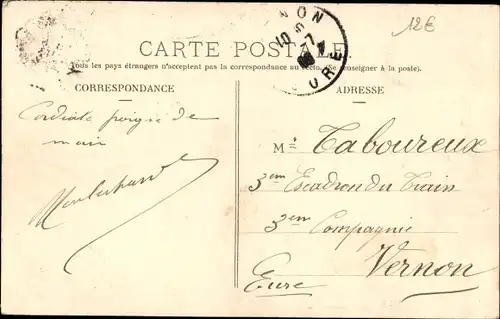 12€
CARTE POSTALE
Tous les pays étrangers n'acceptent pas la correspondance au recto. (Se renseigner à la poste).
CORRESPONDANCE
ADRESSE
Cordiale poignée de
main
Mr Taboureux
3em Escadron du Train
3em Compagnie
Vernon
Eure